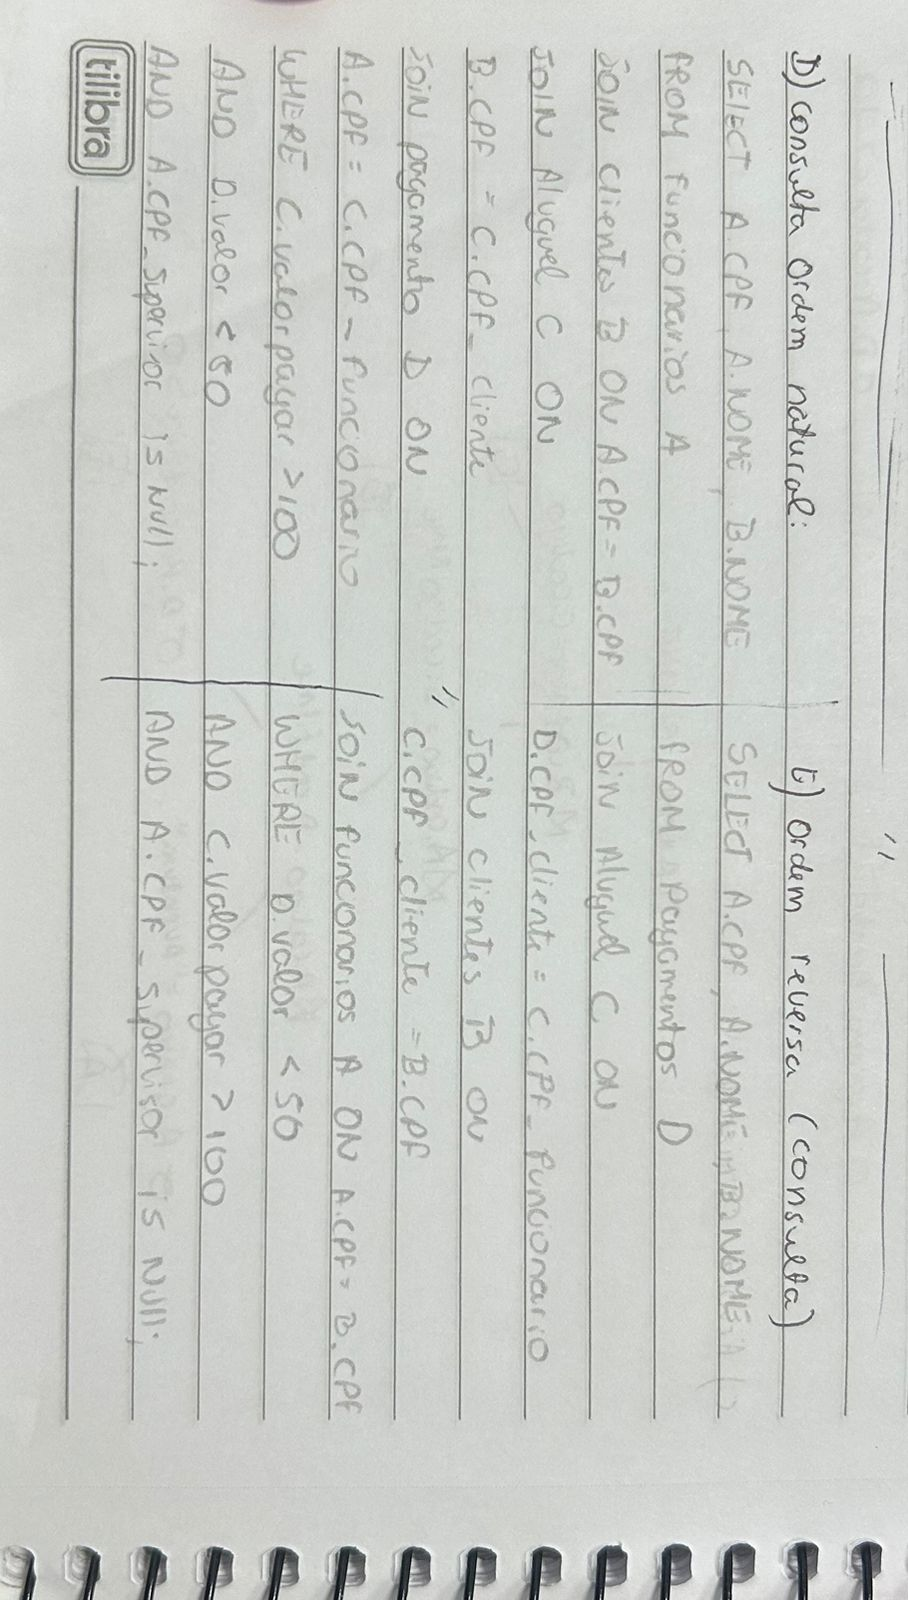 D) consulta ordem natural:
SELECT A.CPF, A.NOME, B.NOME
FROM funcionarios A
JOIN clientes B ON A CPF = B.CPF
JOIN Aluguel C ON
B.CPF = C.CPF_cliente
JOIN pagamento D ON
A.CPF = C.CPF_funcionario
WHERE C.valorpagar > 100
AND D.valor < 50
AND A.CPF_supervisor is Null;
E) ordem reversa (consulta)
SELECT A.CPF, A.NOME, B.NOME
FROM Pagamentos D
JOIN Aluguel C ON
D.CPF_cliente = C.CPF_funcionario
JOIN clientes B ON
C.CPF_cliente = B.CPF
JOIN funconarios A ON A.CPF = B.CPF
WHERE D.valor < 50
AND C.valorpagar > 100
AND A.CPF_supervisor is Null;
tilibra